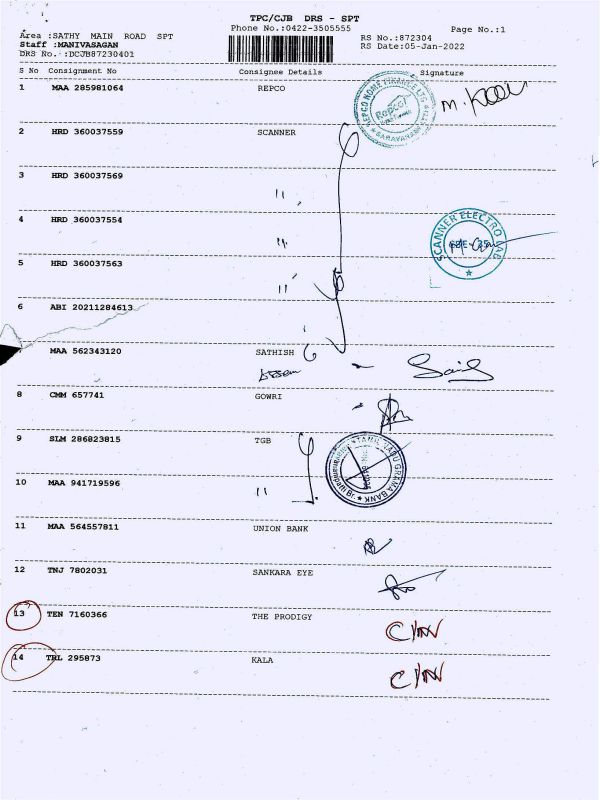 TPC/CJB DRS - SPT
Phone No.:0422-3505555
Page No.:1
Area :SATHY MAIN ROAD SPT
RS No.:872304
Staff :MANIVASAGAN
RS Date:05-Jan-2022
DRS No. :DCJB87230401
S No Consignment No Consignee Details Signature
1 MAA 285981064 REPCO
REPCO HOME FINANCE LTD
Repco
2 HRD 360037559 SCANNER
3 HRD 360037569
"
4 HRD 360037554
"
SCANNER ELECTRO LAB
5 HRD 360037563
"
6 ABI 20211284613
MAA 562343120 SATHISH
8 CMM 657741 GOWRI
9 SLM 286823815 TGB
TAMIL NADU GRAMA BANK
10 MAA 941719596 "
11 MAA 564557811 UNION BANK
12 TNJ 7802031 SANKARA EYE
13 TEN 7160366 THE PRODIGY
14 TRL 295873 KALA